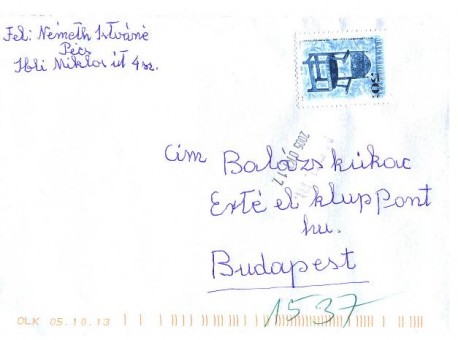 Fel: Németh Istváné
Pécs
Ybli Miklos út 4 sz.
Cím Balázs kukac
Erté el klup Pont
hu.
Budapest
1537
OLK 05.10.13